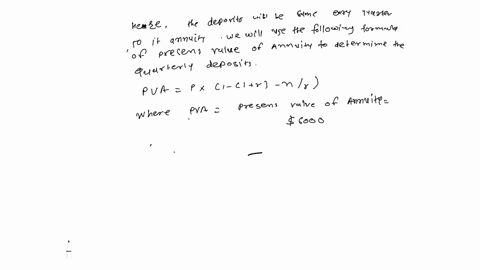 Hence, the deposits will be same every
so it annuity. we will use the following formula
of present value of Annuity to determine the
quarterly deposits.
PVA = P x (1-(1+r)-n/r)
where PVA = present value of Annuity=
$6000